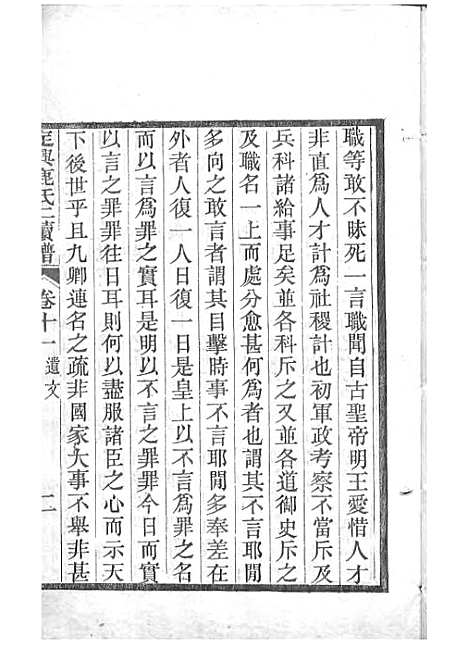 職等敢不昧死一言職聞自古聖帝明王愛惜人才
非直爲人才計爲社稷計也初軍政考察不當斥及
兵科諸給事足矣並各科斥之又並各道御史斥之
及職名一上而處分愈甚何爲者也謂其不言耶閒
多向之敢言者謂其目擊時事不言耶閒多奉差在
外者人復一人日復一日是皇上以不言爲罪之名
而以言爲罪之實耳是明以不言之罪罪今日而實
以言之罪罪往日耳則何以盡服諸臣之心而示天
下後世乎且九卿連名之疏非國家大事不舉非甚
定興鹿氏二續譜
卷十一
遺文
二